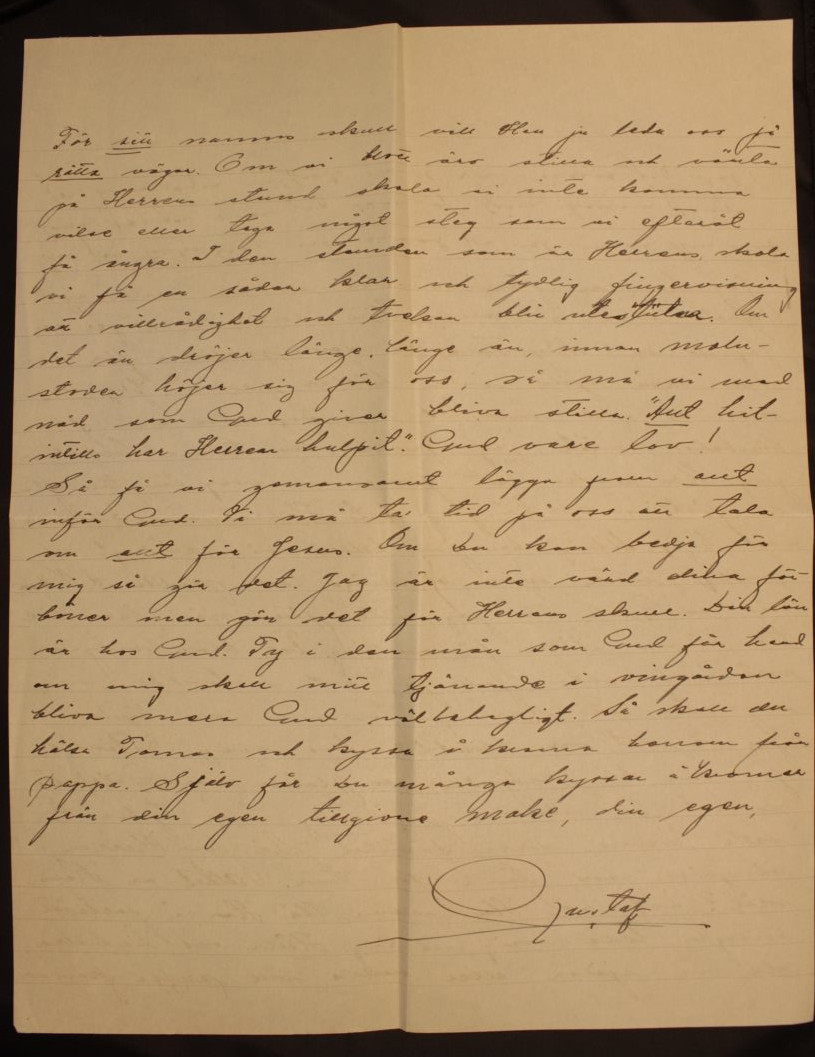 För sitt namns skull vill Han ju leda oss på
rätta vägar. Om vi blott äro stilla och vänta
på Herrens stund skola vi inte komma
vilse eller taga något steg som vi efteråt
få ångra. I den stunden som är Herrens, skola
vi få en sådan klar och tydlig fingervisning
att villrådighet och tvekan bli uteslutna. Om
det än dröjer länge, länge än, innan moln-
stoden höjer sig för oss, så må vi med
nåd som Gud giver bliva stilla. "Allt hit-
intills har Herren hulpit." Gud vare lov!
Så få vi gemensamt lägga fram allt
inför Gud. Vi må ta tid på oss att tala
om allt för Jesus. Om Du kan bedja för
mig så gör det. Jag är inte värd dina för-
böner men gör det för Herrens skull. Din lön
är hos Gud. Ty i den mån som Gud får hand
om mig skall mitt tjänande i vingården
bliva mera Gud välbehagligt. Så skall du
hälsa Tomas och kyssa å krama honom från
pappa. Själv får Du många kyssar å kramar
från din egen tillgivne make, din egen,
Gustaf